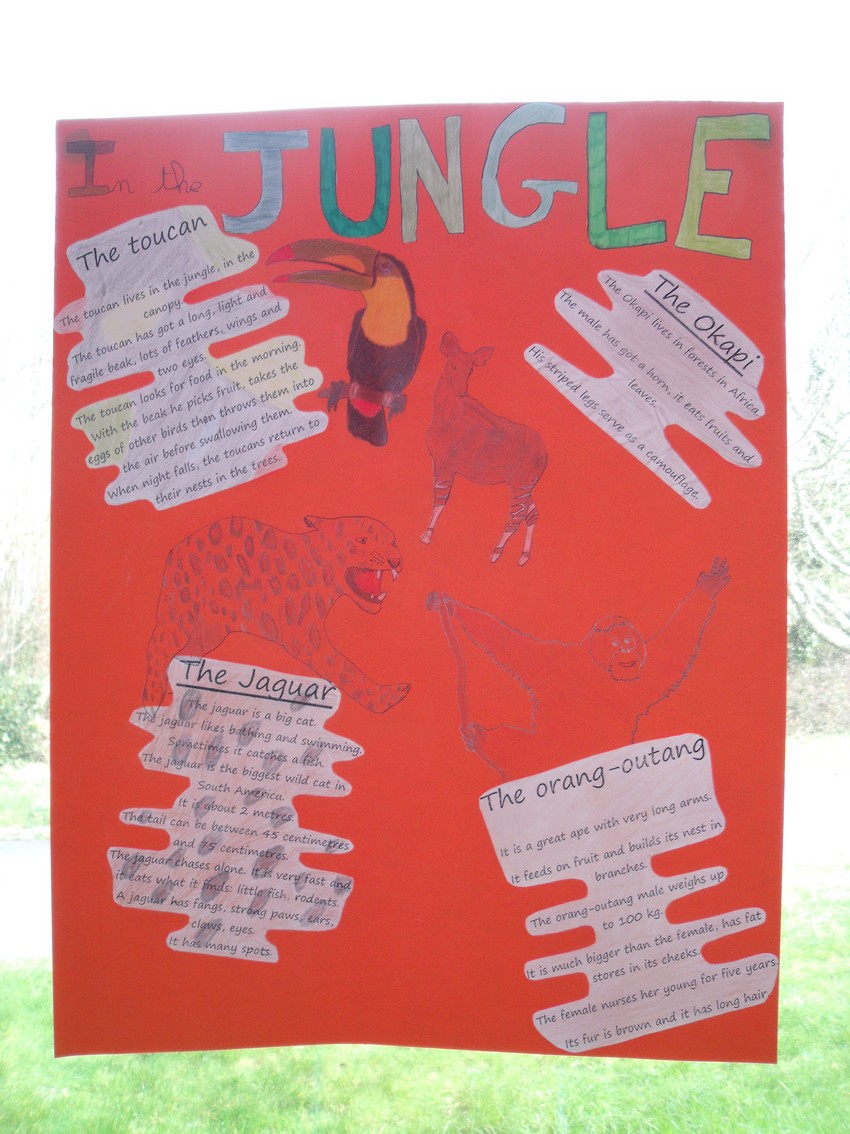 In the JUNGLE
The toucan
The toucan lives in the jungle, in the
canopy.
The toucan has got a long, light and
fragile beak, lots of feathers, wings and
two eyes.
The toucan looks for food in the morning.
With the beak he picks fruit, takes the
eggs of other birds then throws them into
the air before swallowing them.
When night falls, the toucans return to
their nests in the trees.
The Okapi
The Okapi lives in forests in Africa.
The male has got a horn, it eats fruits and
leaves.
His striped legs serve as a camouflage.
The Jaguar
The jaguar is a big cat.
The jaguar likes bathing and swimming.
Sometimes it catches a fish.
The jaguar is the biggest wild cat in
South America.
It is about 2 metres.
The tail can be between 45 centimetres
and 75 centimetres.
The jaguar chases alone. It is very fast and
it eats what it finds: little fish, rodents.
A jaguar has fangs, strong paws, ears,
claws, eyes.
It has many spots.
The orang-outang
It is a great ape with very long arms.
It feeds on fruit and builds its nest in
branches.
The orang-outang male weighs up
to 100 kg.
It is much bigger than the female, has fat
stores in its cheeks.
The female nurses her young for five years.
Its fur is brown and it has long hair